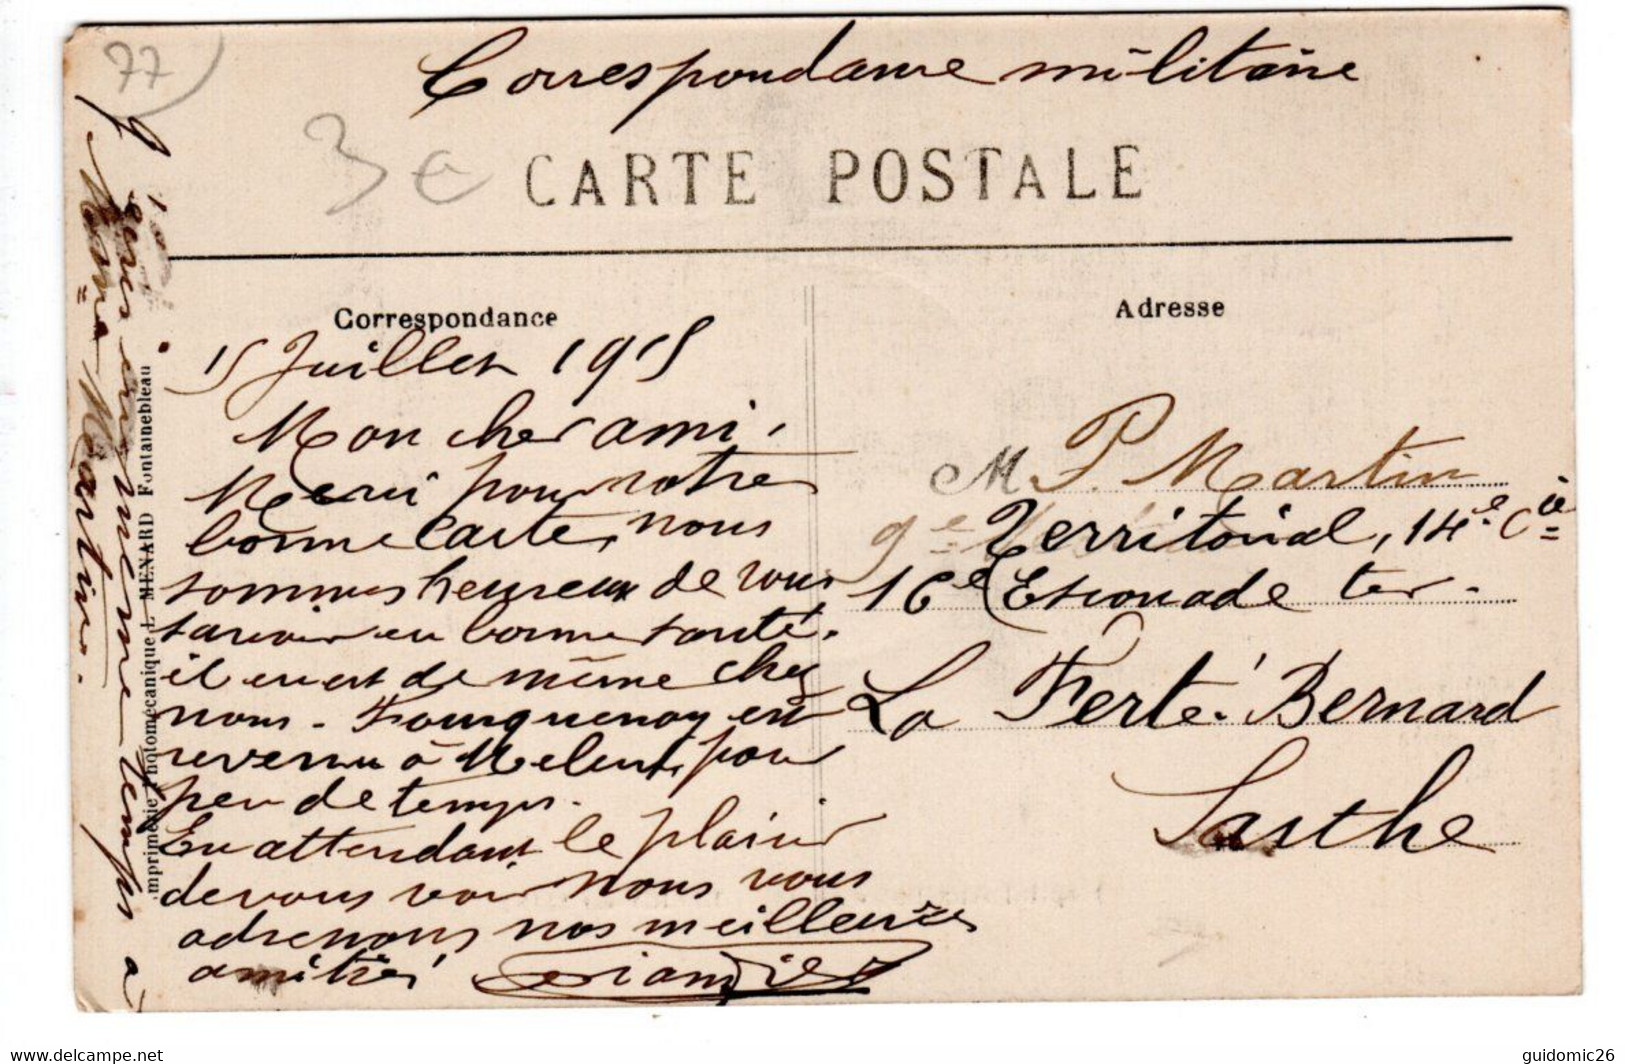 77
Correspondance militaire
3 €
CARTE POSTALE
Correspondance
Adresse
15 Juillet 1915
Mon cher ami,
Merci pour votre
bonne carte, nous
sommes heureux de vous
savoir en bonne santé.
il en est de même chez
nous. Fouquenay est
revenu à Melun, pour
peu de temps.
En attendant le plaisir
de vous voir nous vous
adressons nos meilleures
amitiés
M P. Martin
9e Territorial, 14e Cie
16e Escouade ter.
La Ferté-Bernard
Sarthe
en même temps à
Martin.
Imprimerie Photomécanique L. MENARD Fontainebleau
https://www.delcampe.net
guidomic26